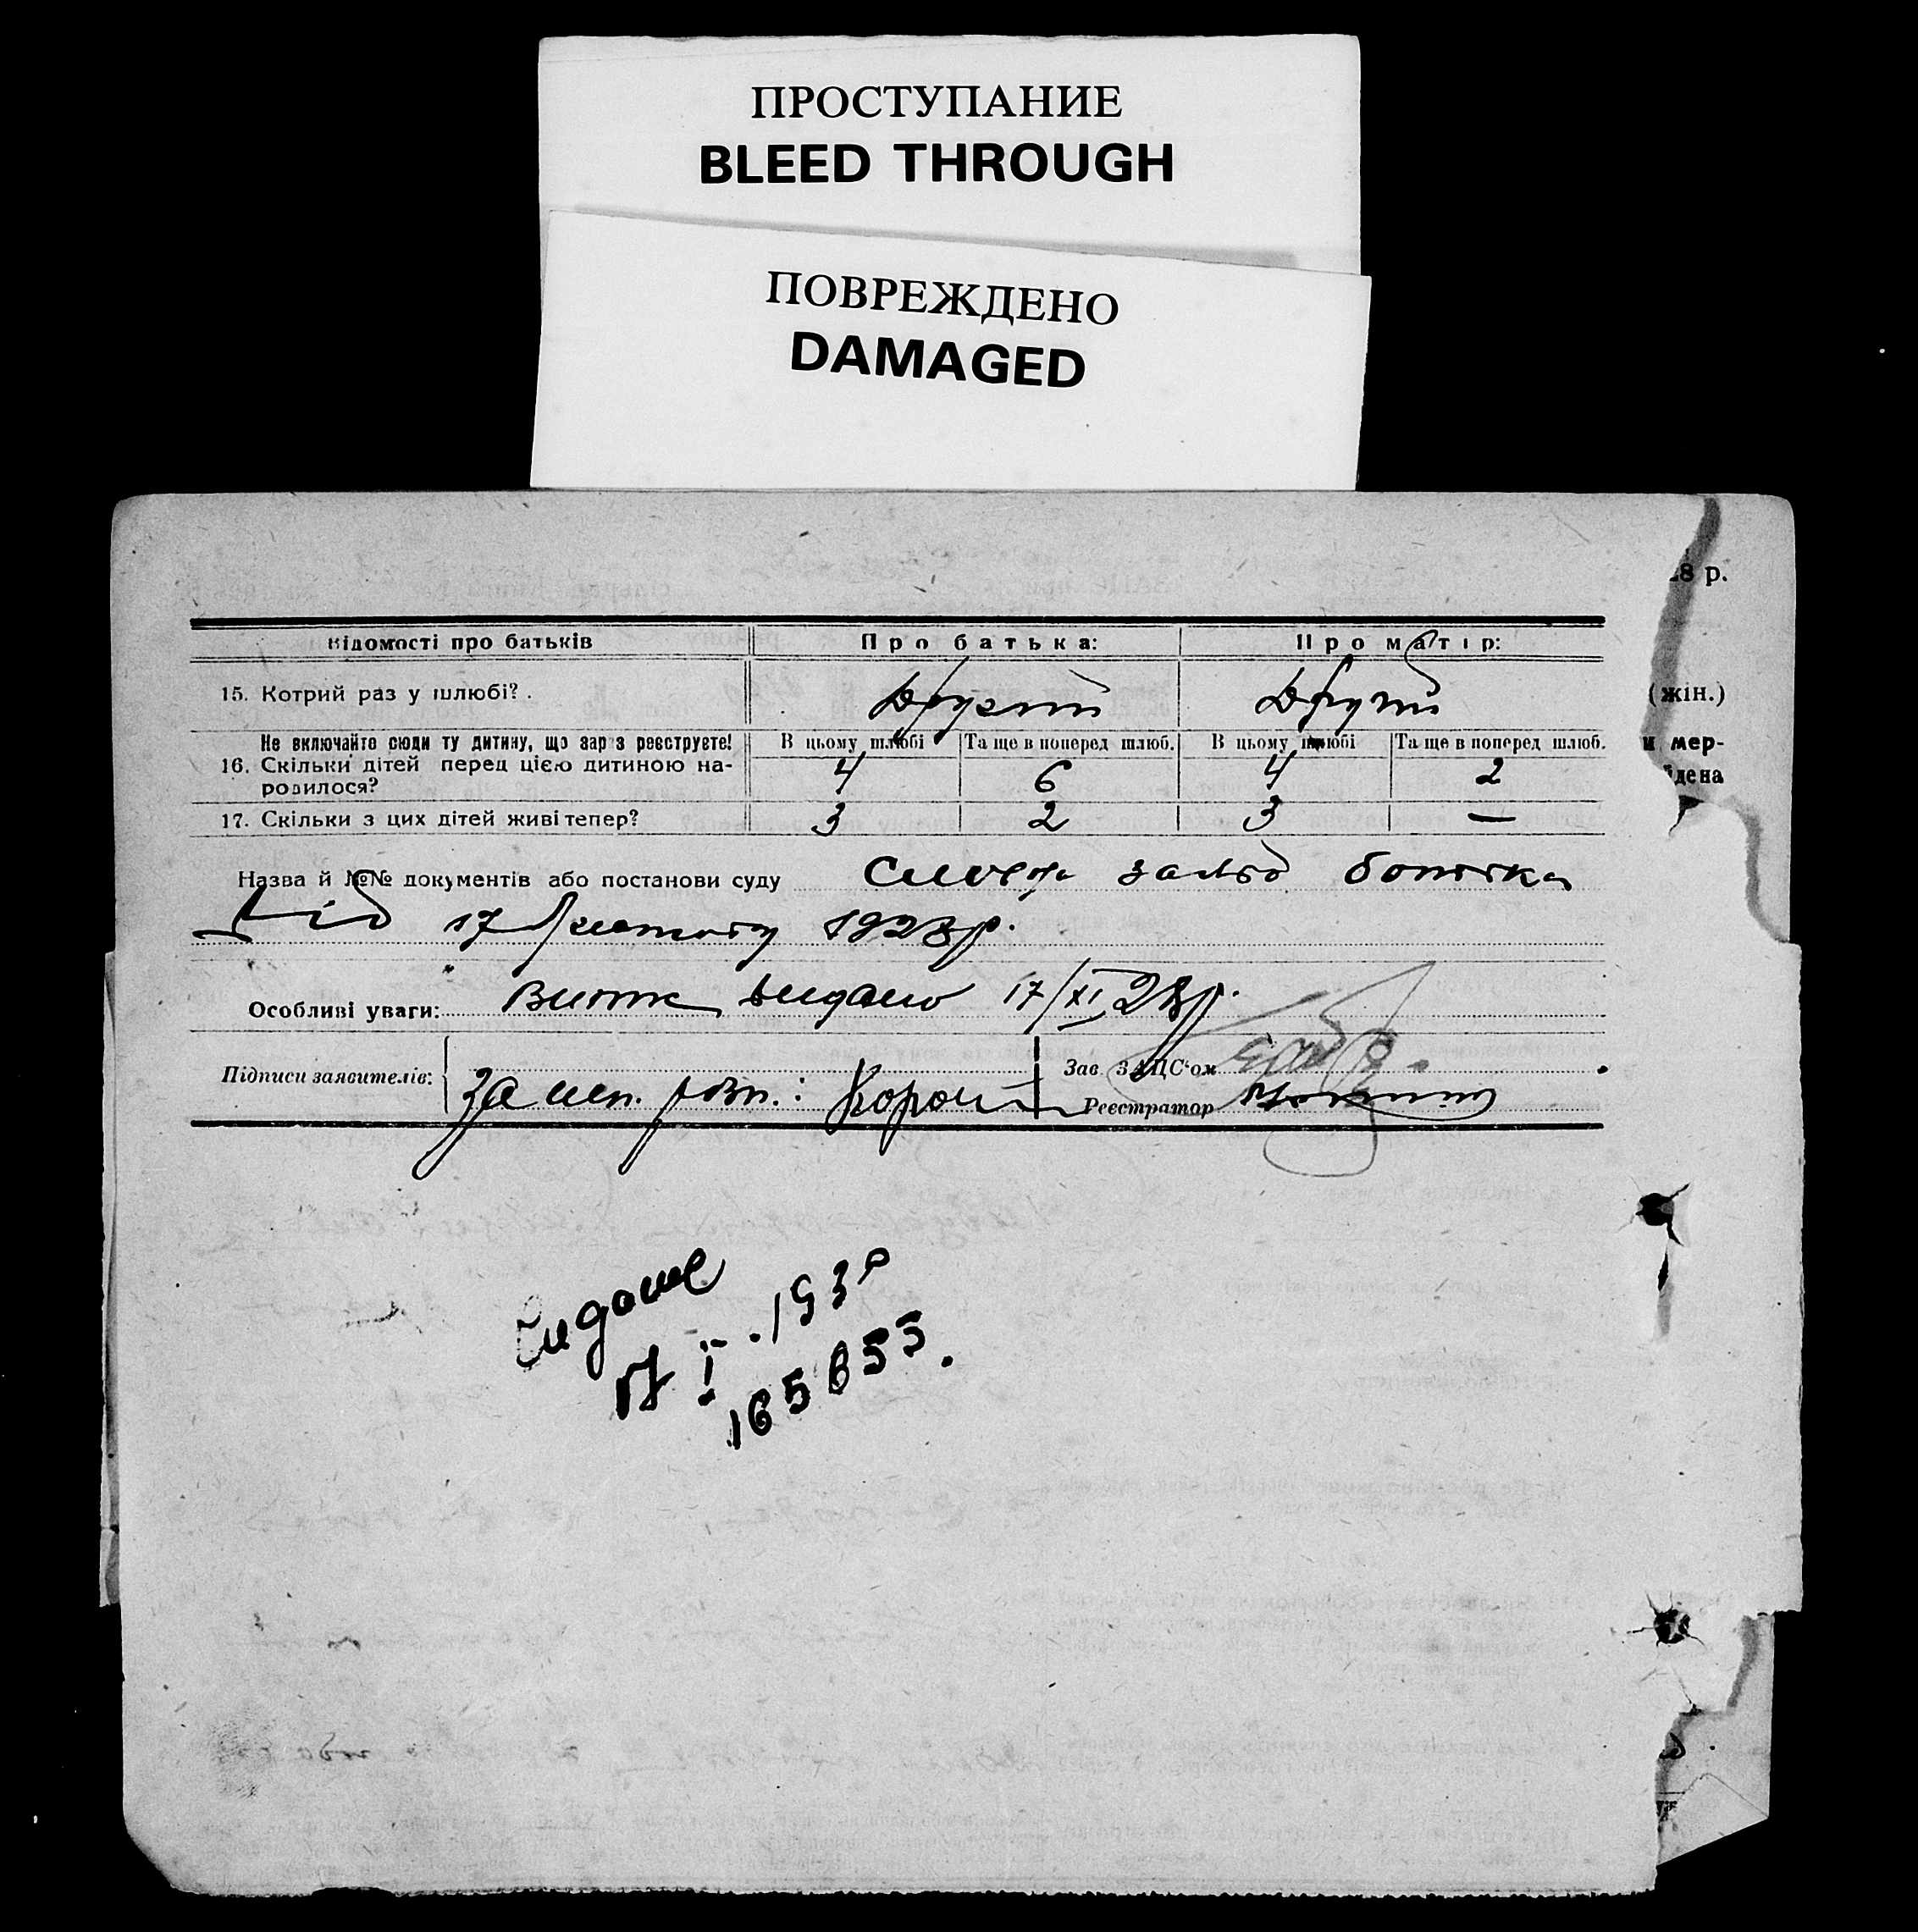 ПРОСТУПАНИЕ
BLEED THROUGH
ПОВРЕЖДЕНО
DAMAGED
28 р.
Відомості про батьків Про батька: Про матір:
15. Котрий раз у шлюбі? . Другий Другий
(жін.)
Не включайте сюди ту дитину, що зараз реєструєте! В цьому шлюбі Та ще в поперед шлюб. В цьому шлюбі Та ще в поперед шлюб.
и мер-
16. Скільки дітей перед цією дитиною на-
родилося? 4 6 4 2
йдена
17. Скільки з цих дітей живі тепер? 3 2 3 —
Назва й №№ документів або постанови суду Словерс заява батька
Від 17 лютого 1928р.
Особливі уваги: Витяг видано 17/XI 28р.
Підписи заявителів: За неп. розп.: Зав ЗАЦС'ом
Реєстратор
Видане
I . 193
165653.